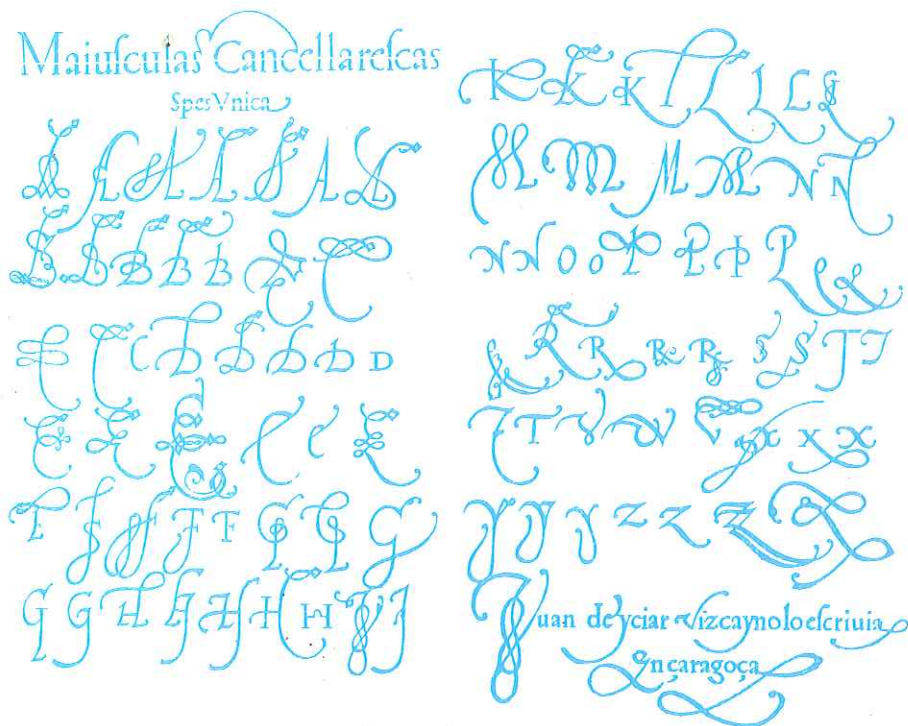 Maiuſculas Cancellareſcas
Spes Vnica
A A A A A A A
B B B B B C C
C C C D D D D D
E E E E E E
F F F F F G G G
G G H H H H H I I
K K K L L L L
M M M M N N
N N O O P P P P Q Q
Q R R R R S S T T
T T V V V X X X
Y Y Y Z Z Z Z
Iuan de yciar vizcayno lo eſcriuia
En çaragoça